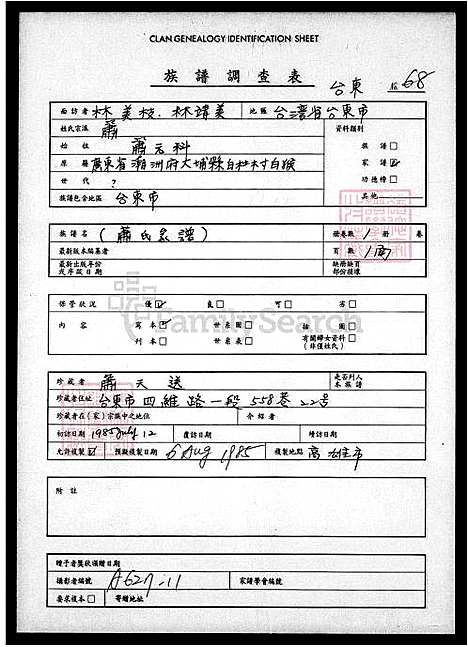 CLAN GENEALOGY IDENTIFICATION SHEET
族譜調查表 台東 № 68
面訪者 林美枝.林瑋美 地區 台灣省台東市
姓氏宗派 蕭 資料類別
始祖 蕭元科 族譜 □
原籍 廣東省潮洲府大埔縣白村白猴 家譜 ☑
世代 ? 功德榜 □
族譜包含地區 台東市 其他
族譜名 (蕭氏家譜) 冊卷數 1 冊 卷
最新版本編纂者 頁數
最新出版年份或序跋日期 缺冊缺頁部份損壞
保管狀況 優 ☑ 良 □ 可 □ 劣 □
內容 寫本 ☑ 世系圖 □ 插圖 □
刊本 □ 世系表 □ 有關婦女資料 □ (非僅姓氏)
FamilySearch
珍藏者 蕭天送 是否列入本族譜
珍藏者住址 台東市四維路一段558巷22号
珍藏者在(家)宗族中之地位 介紹者
初訪日期 1985 July 12 復訪日期 續訪日期
允許複製 ☑ 預擬複製日期 6 Aug 1985 複製地點 高雄市
附註
贈予者獎狀頒贈日期
攝影者編號 A627-11 家譜學會編號
要求複本 □ 寄贈地址